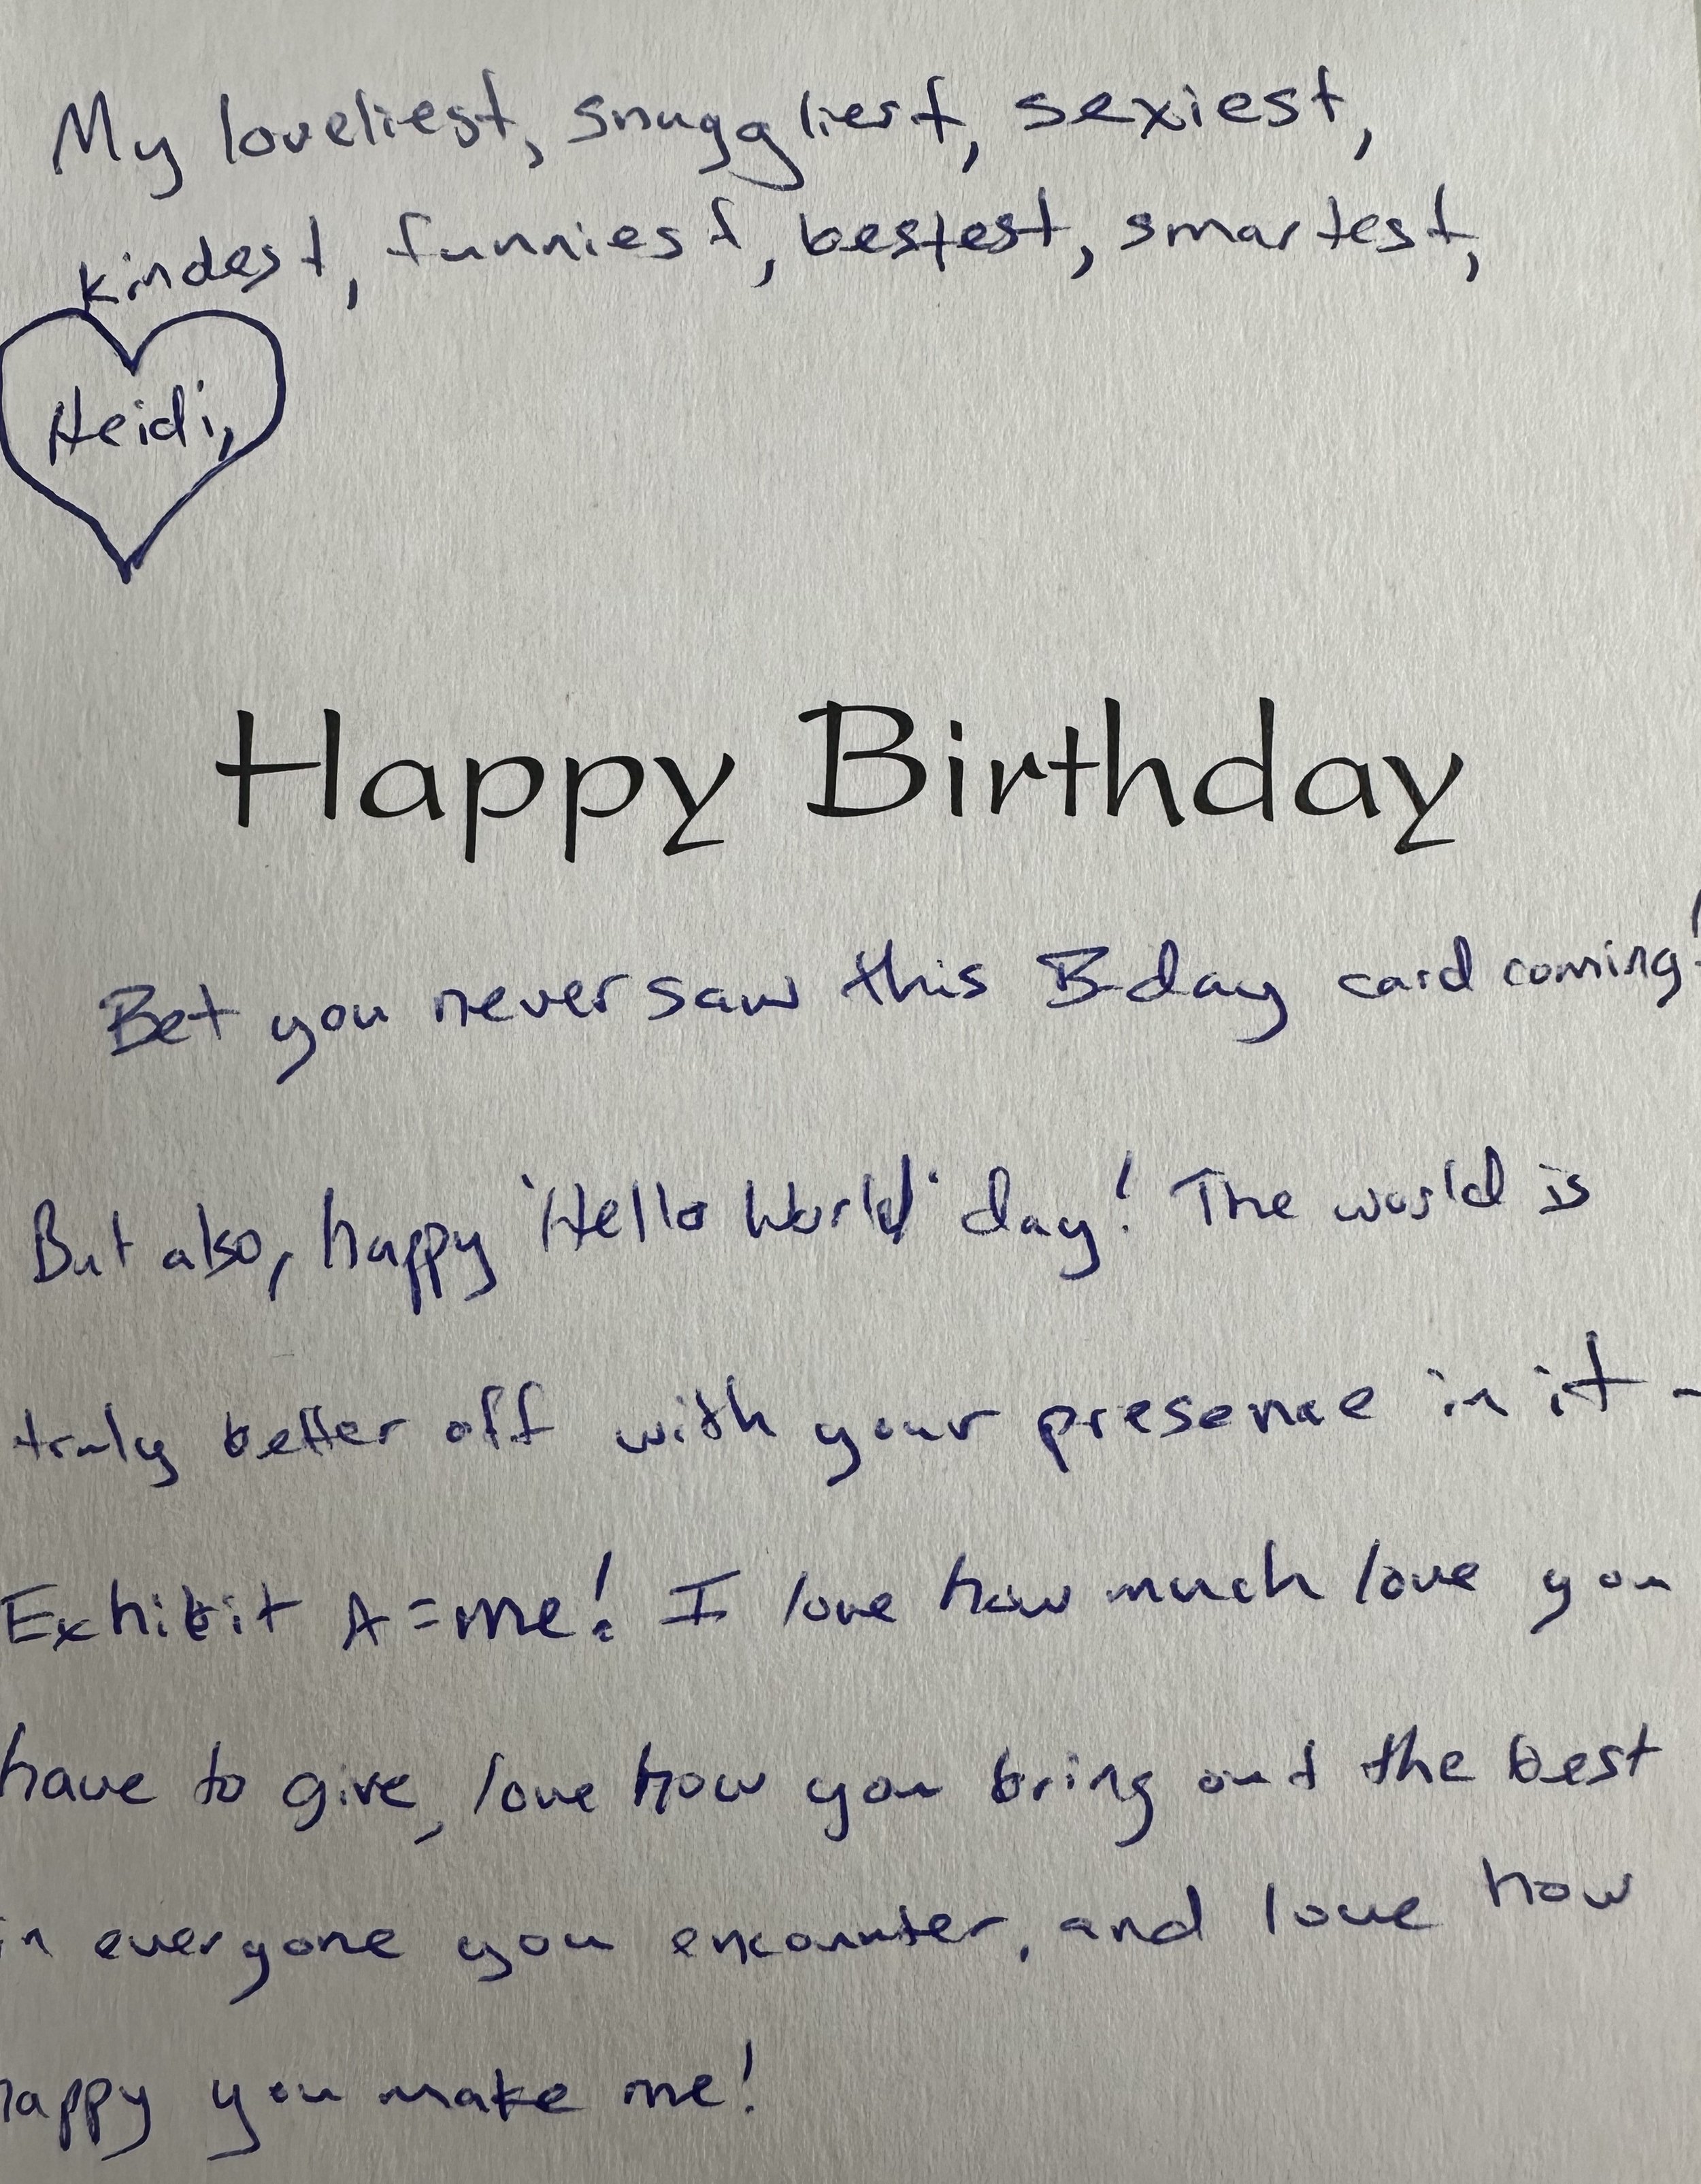 My loveliest, snuggliest, sexiest,
kindest, funniest, bestest, smartest,
Heidi,
Happy Birthday
Bet you never saw this B-day card coming!
But also, happy 'Hello World' day! The world is
truly better off with your presence in it -
Exhibit A = me! I love how much love you
have to give, love how you bring out the best
in everyone you encounter, and love how
happy you make me!